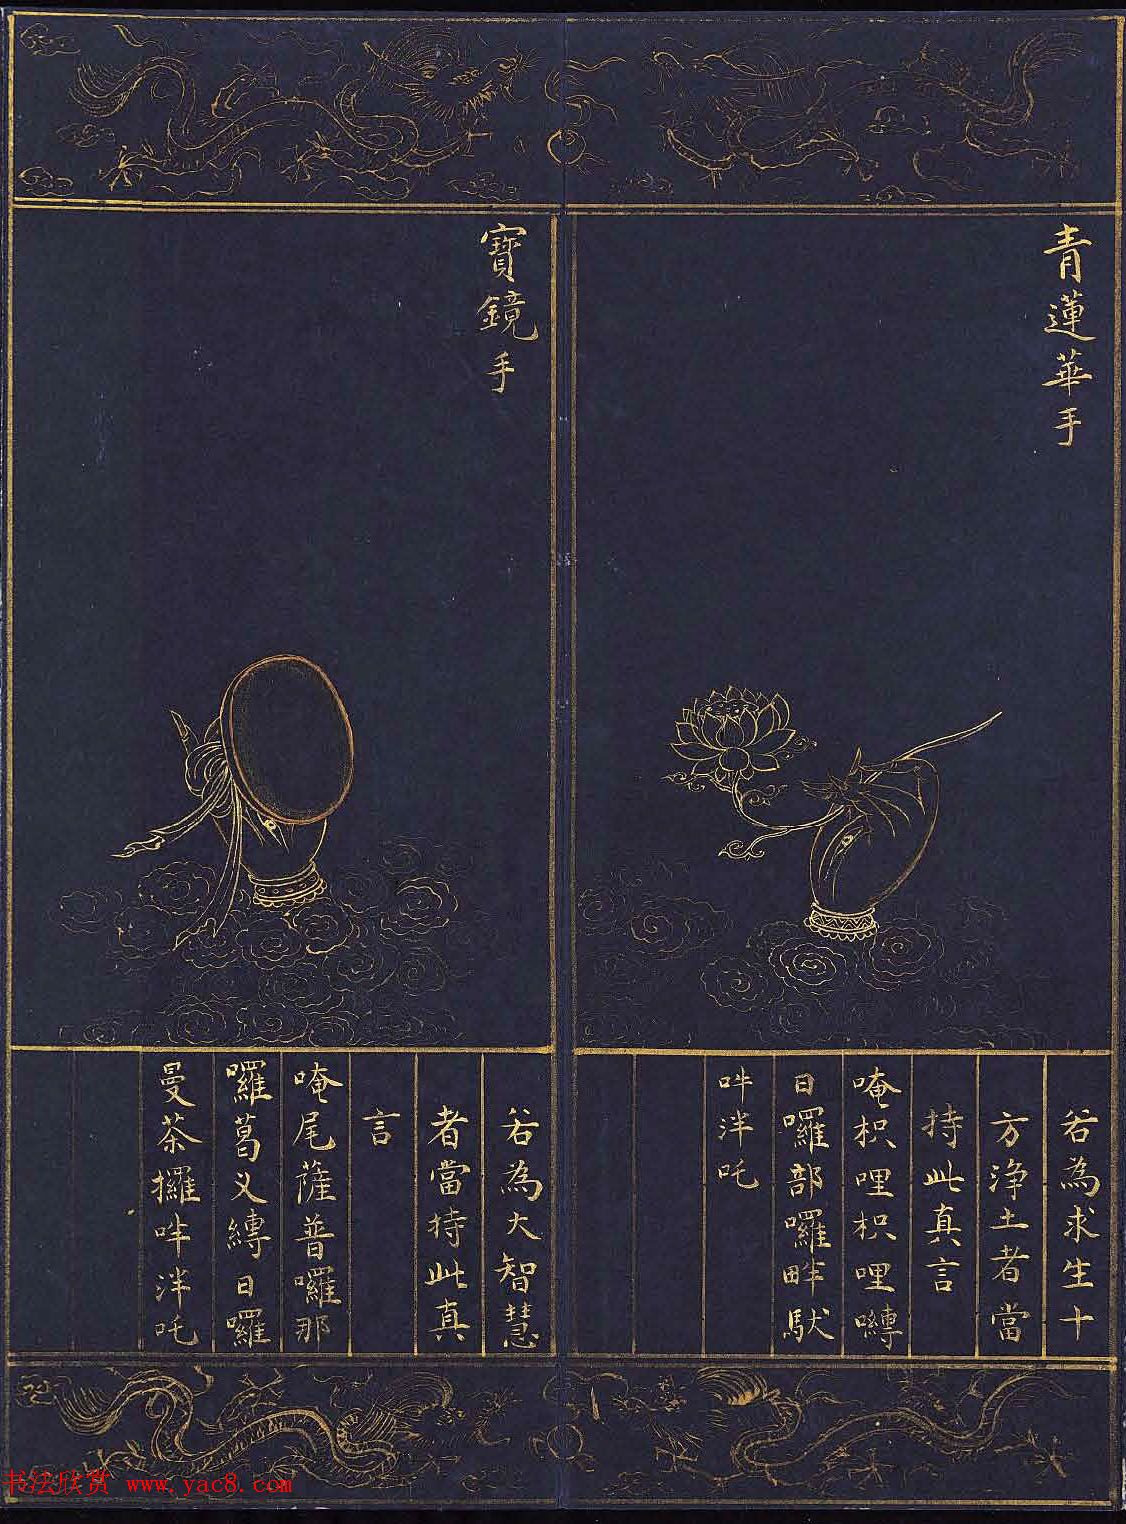 青蓮華手
若為求生十
方淨土者當
持此真言
唵枳哩枳哩嚩
日囉部囉畔馱
吽泮吒
寶鏡手
若為大智慧
者當持此真
言
唵尾薩普囉那
囉葛义縛日囉
曼荼攞吽泮吒
书法欣赏 www.yac8.com